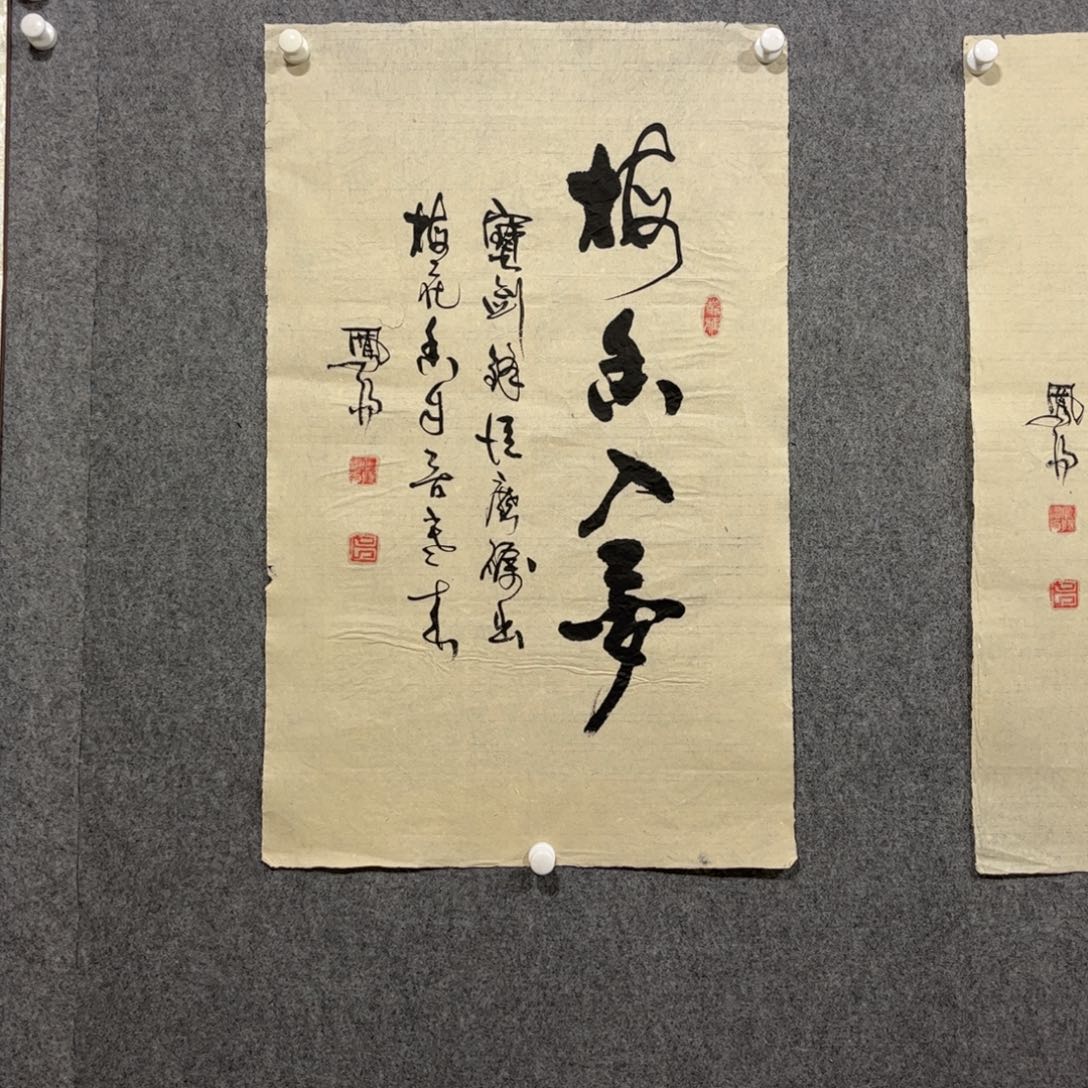 梅香入夢
寶劍鋒從磨礪出
梅花香自苦寒來
鳳
吕
鳳
吕